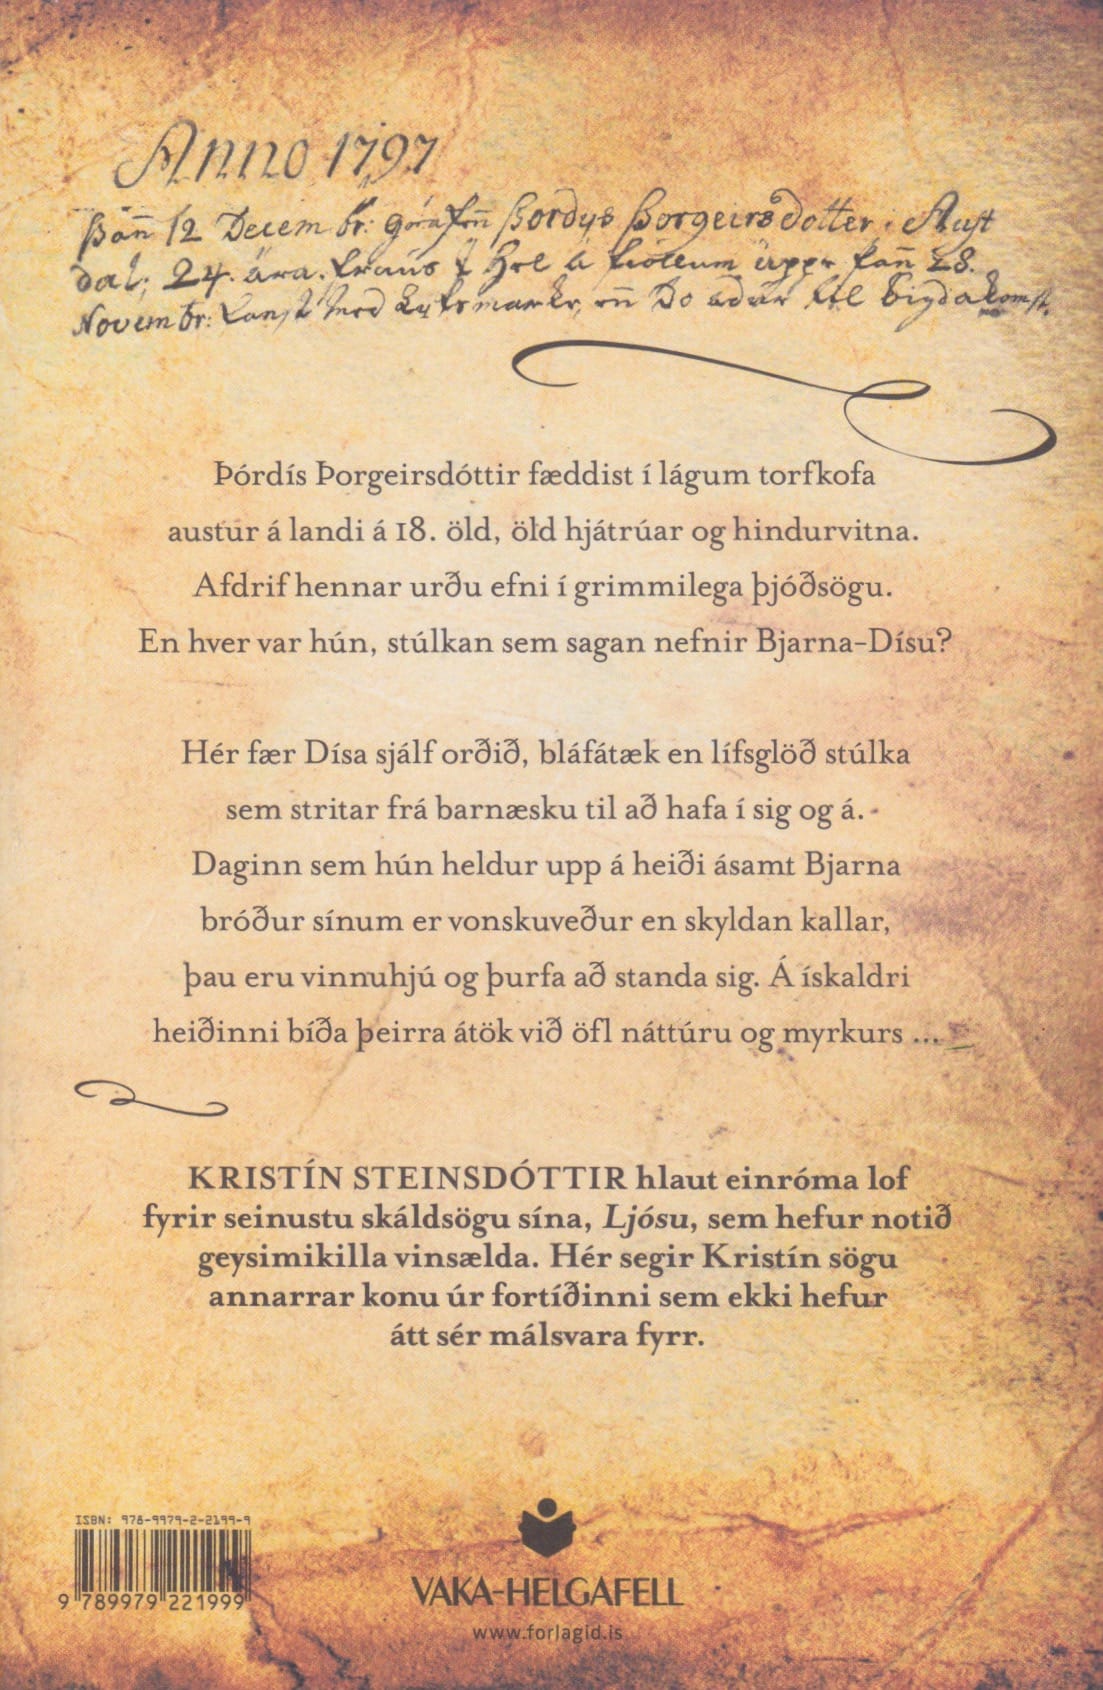 Anno 1797
Þan̄ 12 Decembr: grafen̄ Þordys Þorgeirsdotter. Aust
dal; 24. ära. fraus í Hel á fiöllum uppe þan̄ 28.
Novembr: fanst með Lyfsmarke, en̄ Do adur til bigda komst.
Þórdís Þorgeirsdóttir fæddist í lágum torfkofa
austur á landi á 18. öld, öld hjátrúar og hindurvitna.
Afdrif hennar urðu efni í grimmilega þjóðsögu.
En hver var hún, stúlkan sem sagan nefnir Bjarna-Dísu?
Hér fær Dísa sjálf orðið, bláfátæk en lífsglöð stúlka
sem stritar frá barnæsku til að hafa í sig og á.
Daginn sem hún heldur upp á heiði ásamt Bjarna
bróður sínum er vonskuveður en skyldan kallar,
þau eru vinnuhjú og þurfa að standa sig. Á ískaldri
heiðinni bíða þeirra átök við öfl náttúru og myrkurs ...
KRISTÍN STEINSDÓTTIR hlaut einróma lof
fyrir seinustu skáldsögu sína, Ljósu, sem hefur notið
geysimikilla vinsælda. Hér segir Kristín sögu
annarrar konu úr fortíðinni sem ekki hefur
átt sér málsvara fyrr.
ISBN: 978-9979-2-2199-9
9 789979 221999
VAKA-HELGAFELL
www.forlagid.is